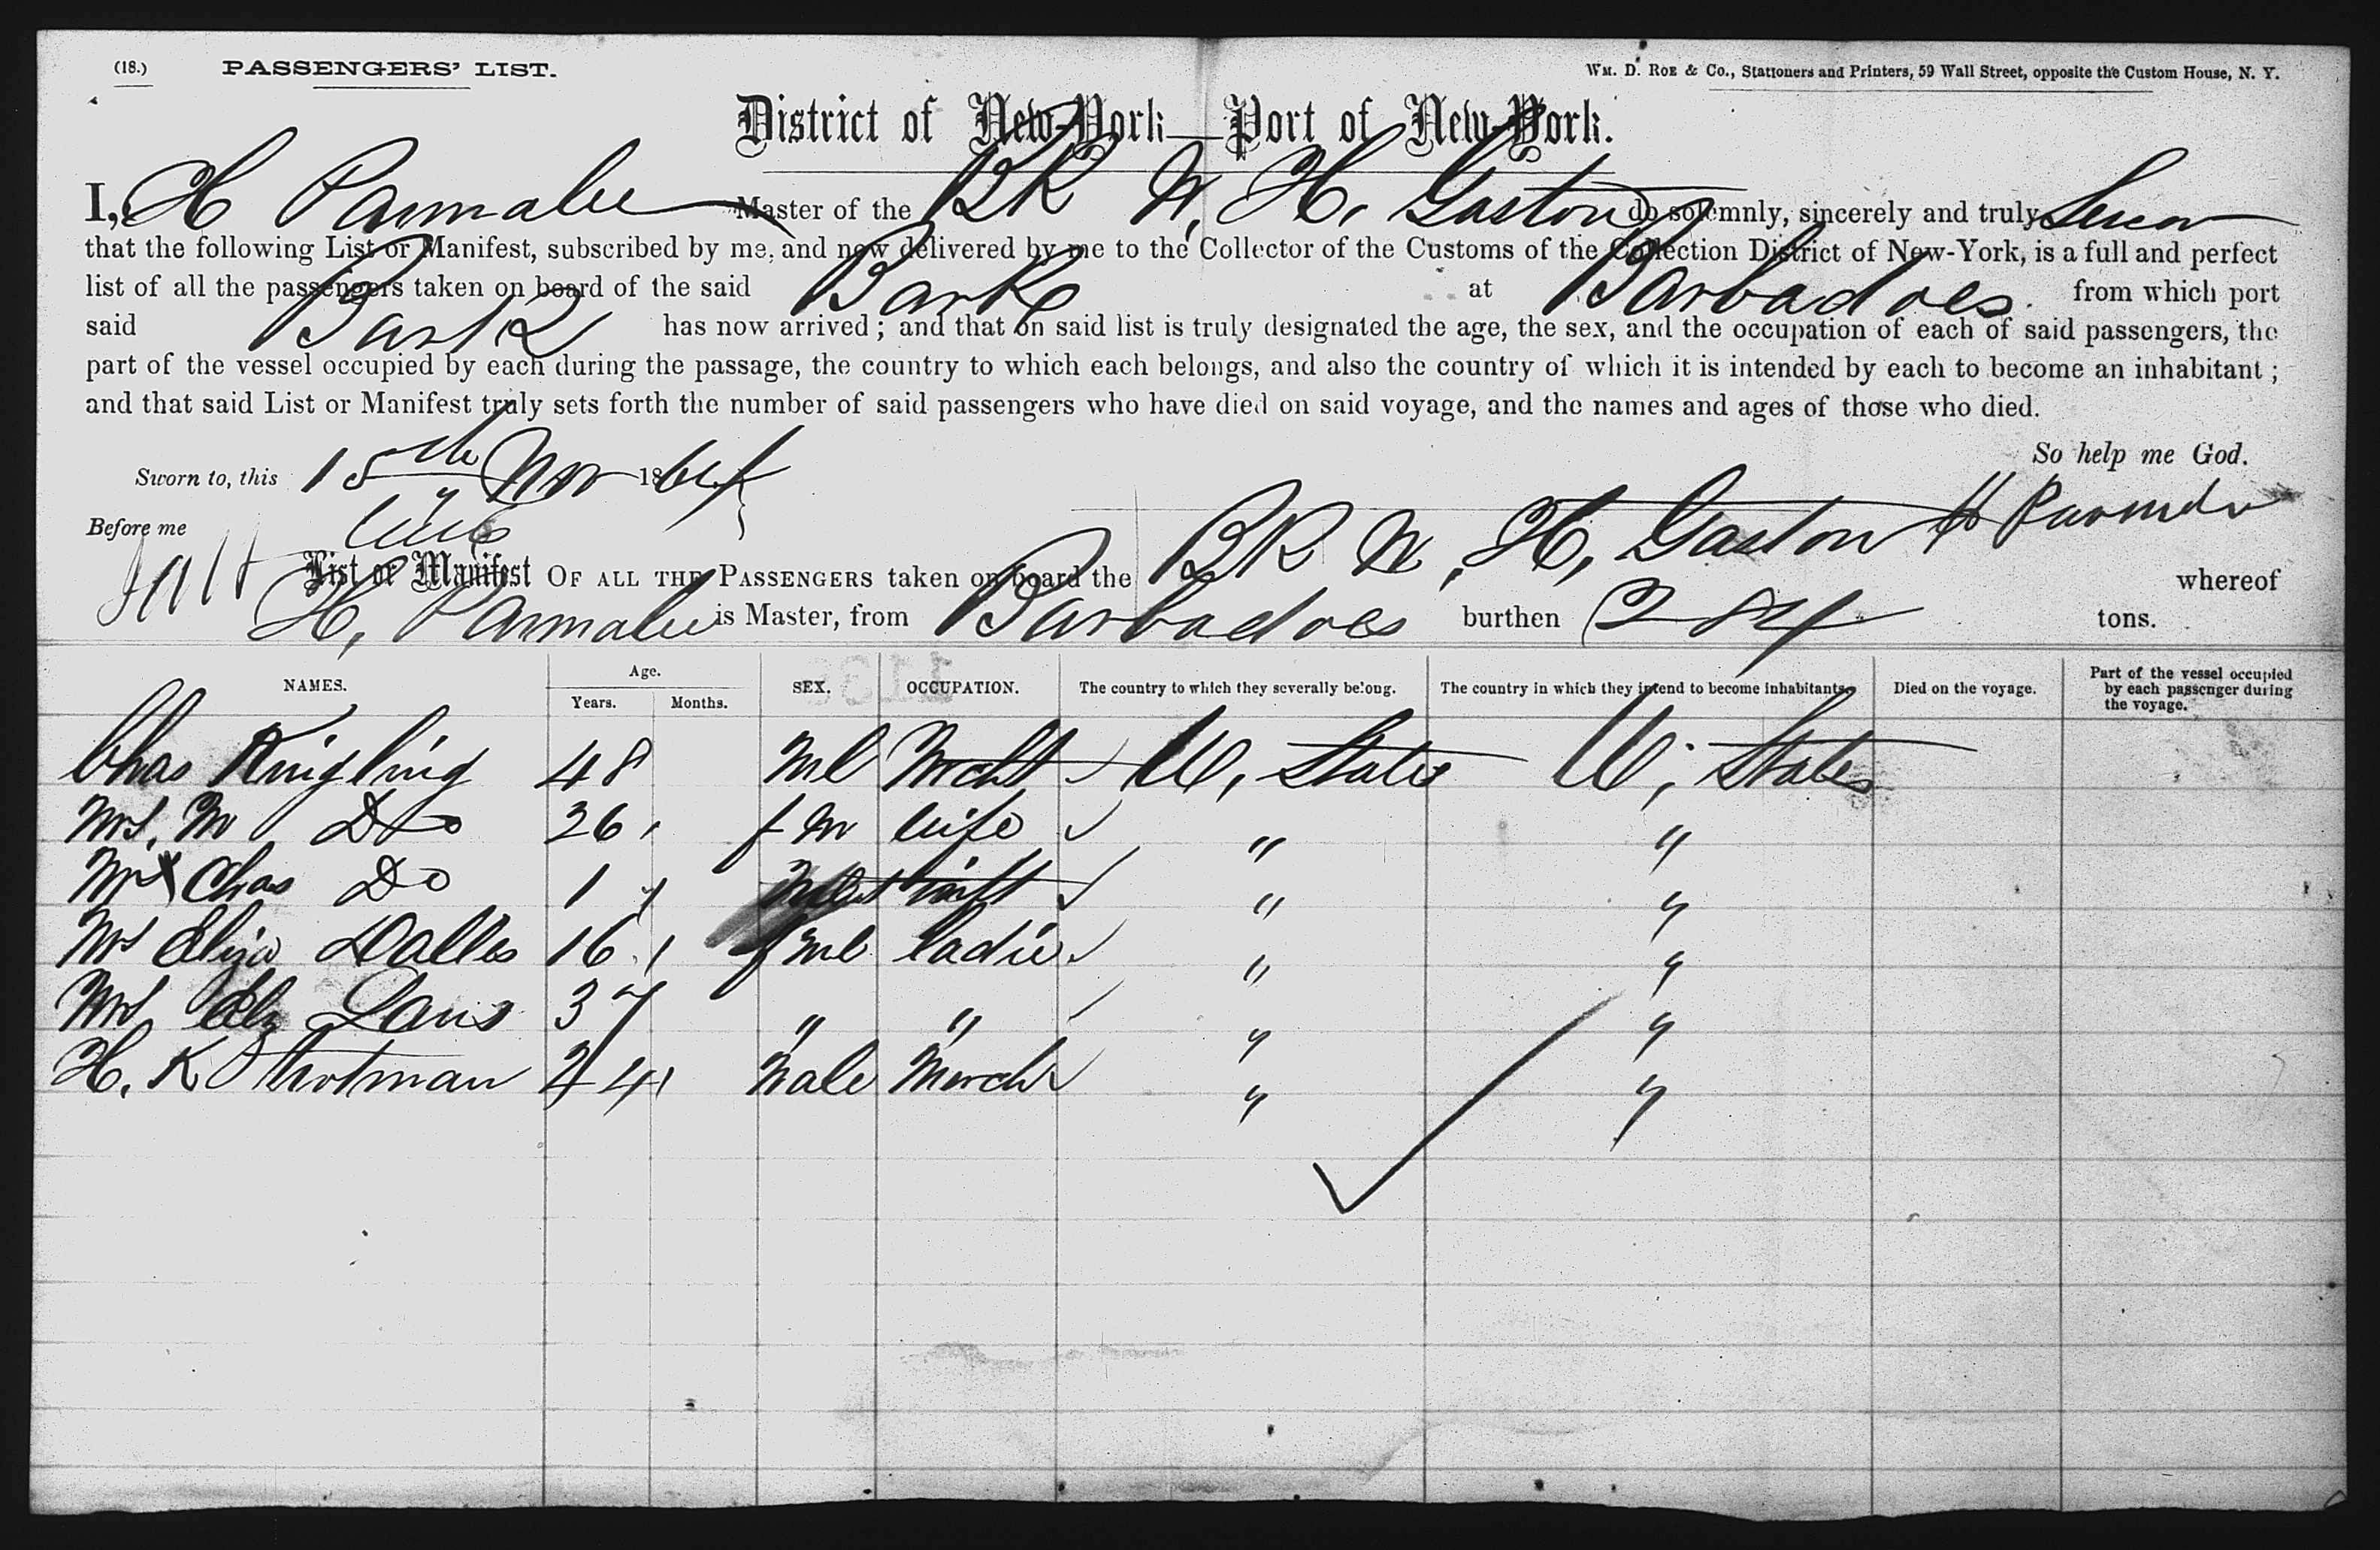 (18.) PASSENGERS' LIST. WM. D. ROE & Co., Stationers and Printers, 59 Wall Street, opposite the Custom House, N. Y.
District of New-York—Port of New-York.
I, H Parmalee Master of the BK W. H. Gaston do solemnly, sincerely and truly Swear
that the following List or Manifest, subscribed by me, and now delivered by me to the Collector of the Customs of the Collection District of New-York, is a full and perfect
list of all the passengers taken on board of the said Bark at Barbadoes from which port
said Bark has now arrived; and that on said list is truly designated the age, the sex, and the occupation of each of said passengers, the
part of the vessel occupied by each during the passage, the country to which each belongs, and also the country of which it is intended by each to become an inhabitant;
and that said List or Manifest truly sets forth the number of said passengers who have died on said voyage, and the names and ages of those who died.
So help me God.
Sworn to, this 15th Nov 1864
Before me
List or Manifest OF ALL THE PASSENGERS taken on board the BK W. H. Gaston whereof
H. Parmalee is Master, from Barbadoes burthen 284 tons.
NAMES. Age. Years. Months. SEX. OCCUPATION. The country to which they severally belong. The country in which they intend to become inhabitants. Died on the voyage. Part of the vessel occupied by each passenger during the voyage.
Chas Kingling 48 Ml Mcht U, States U, States
Mrs. M Do 26 fm wife " "
Chas Do 1 inft " "
Eliza Dalles 16 fml ladie " "
Mrs Elz 37 " " " "
H. K 24 Male Merch " "